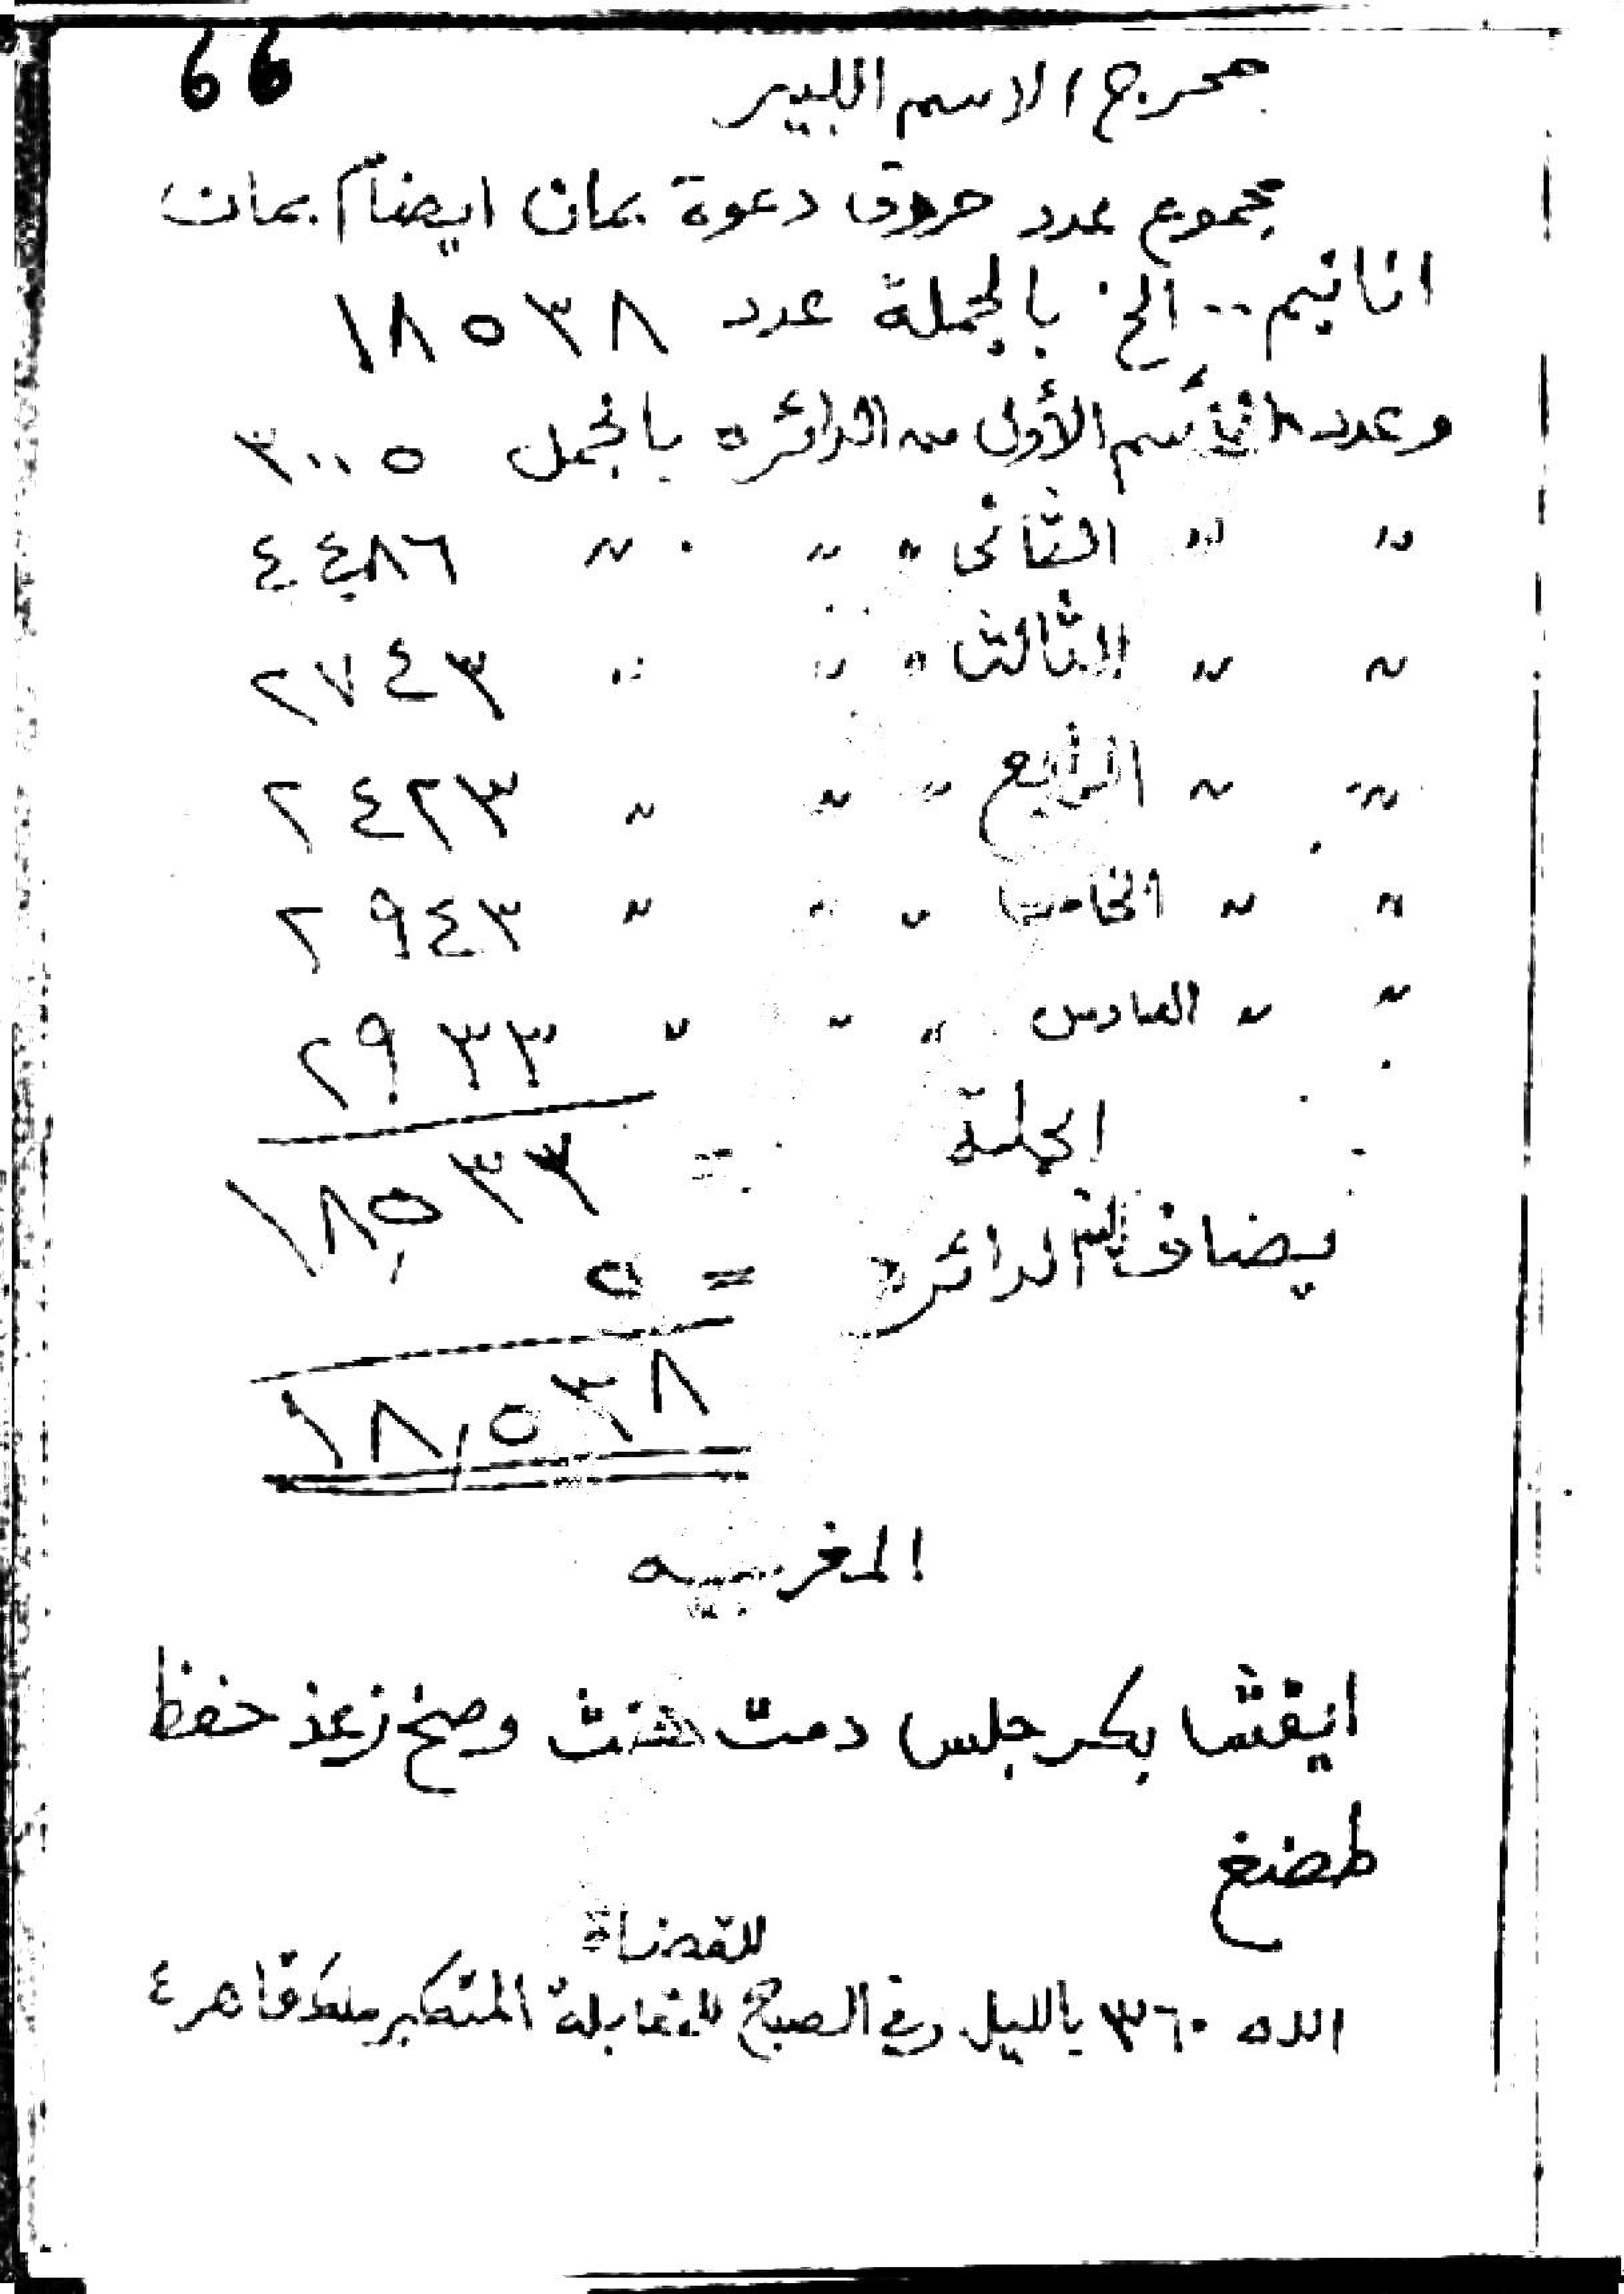 66
مخرج الاسم الكبير
مجموع عدد حروف دعوة بمان ايضاً بمان
انانيم .. الخ بالجملة عدد ١٨٥٣٨
وعدد القسم الأول من الدائره بالجمل ٣٠٠٥
" " الثانى " " " ٤٤٨٦
" " الثالث " " " ٢٧٤٣
" " الرابع " " " ٢٤٢٣
" " الخامس " " " ٢٩٤٣
" " السادس " " " ٢٩٣٣
الجملة = ١٨,٥٣٣
يضاف الدائره = ٥
١٨,٥٣٨
المغربيه
ايقش بكر جلس دمت هنث وصخ زعذ حفظ
طضغ
للقضاة
الله ٣٦٠ بالليل وفي الصبح للمقابلة المتكبر ملك قاهر ٤